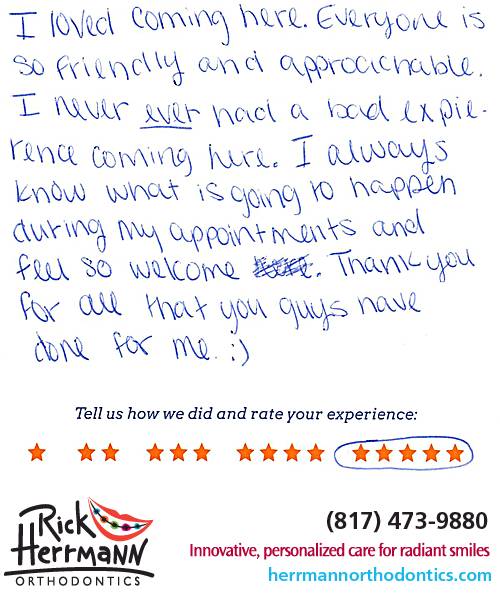 I loved coming here. Everyone is
so friendly and approachable.
I never ever had a bad expie-
rence coming here. I always
know what is going to happen
during my appointments and
feel so welcome . Thank you
for all that you guys have
done for me. :)
Tell us how we did and rate your experience:
Rick
Herrmann
ORTHODONTICS
(817) 473-9880
Innovative, personalized care for radiant smiles
herrmannorthodontics.com